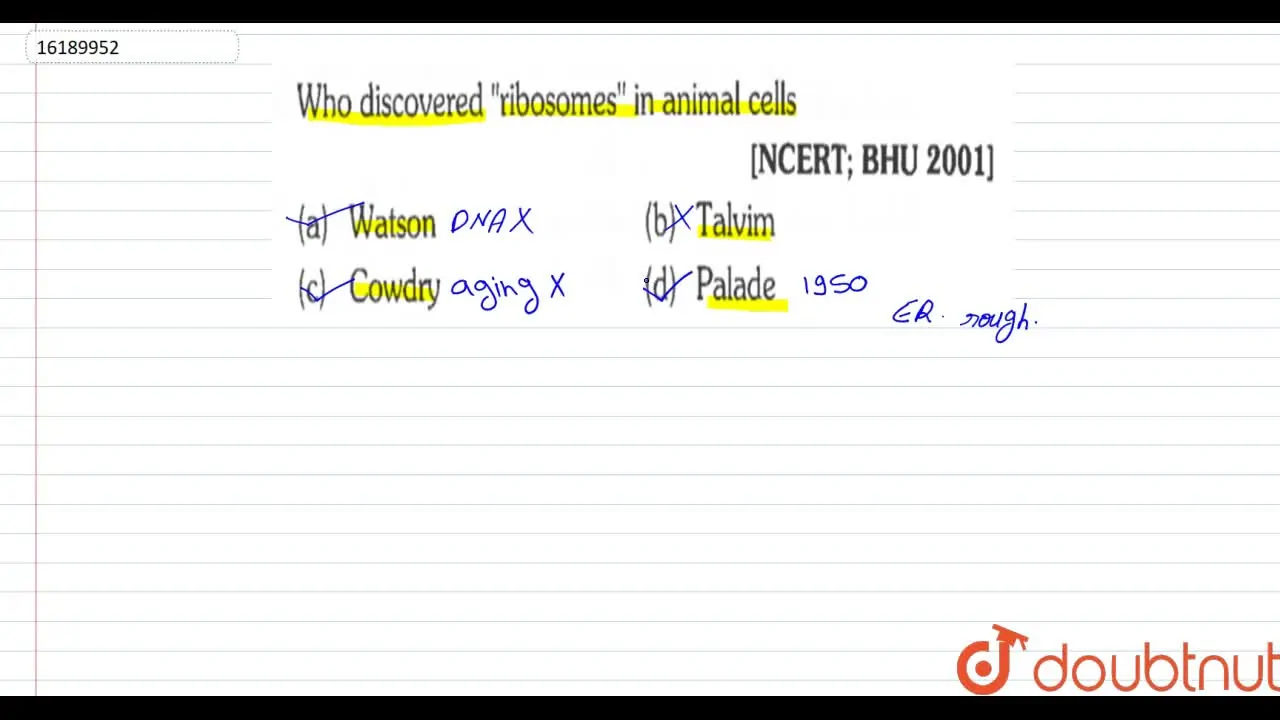 16189952
Who discovered "ribosomes" in animal cells
[NCERT; BHU 2001]
(a) Watson DNA X (b) X Talvim
(c) Cowdry aging X (d) Palade 1950
ER. rough.
doubtnut